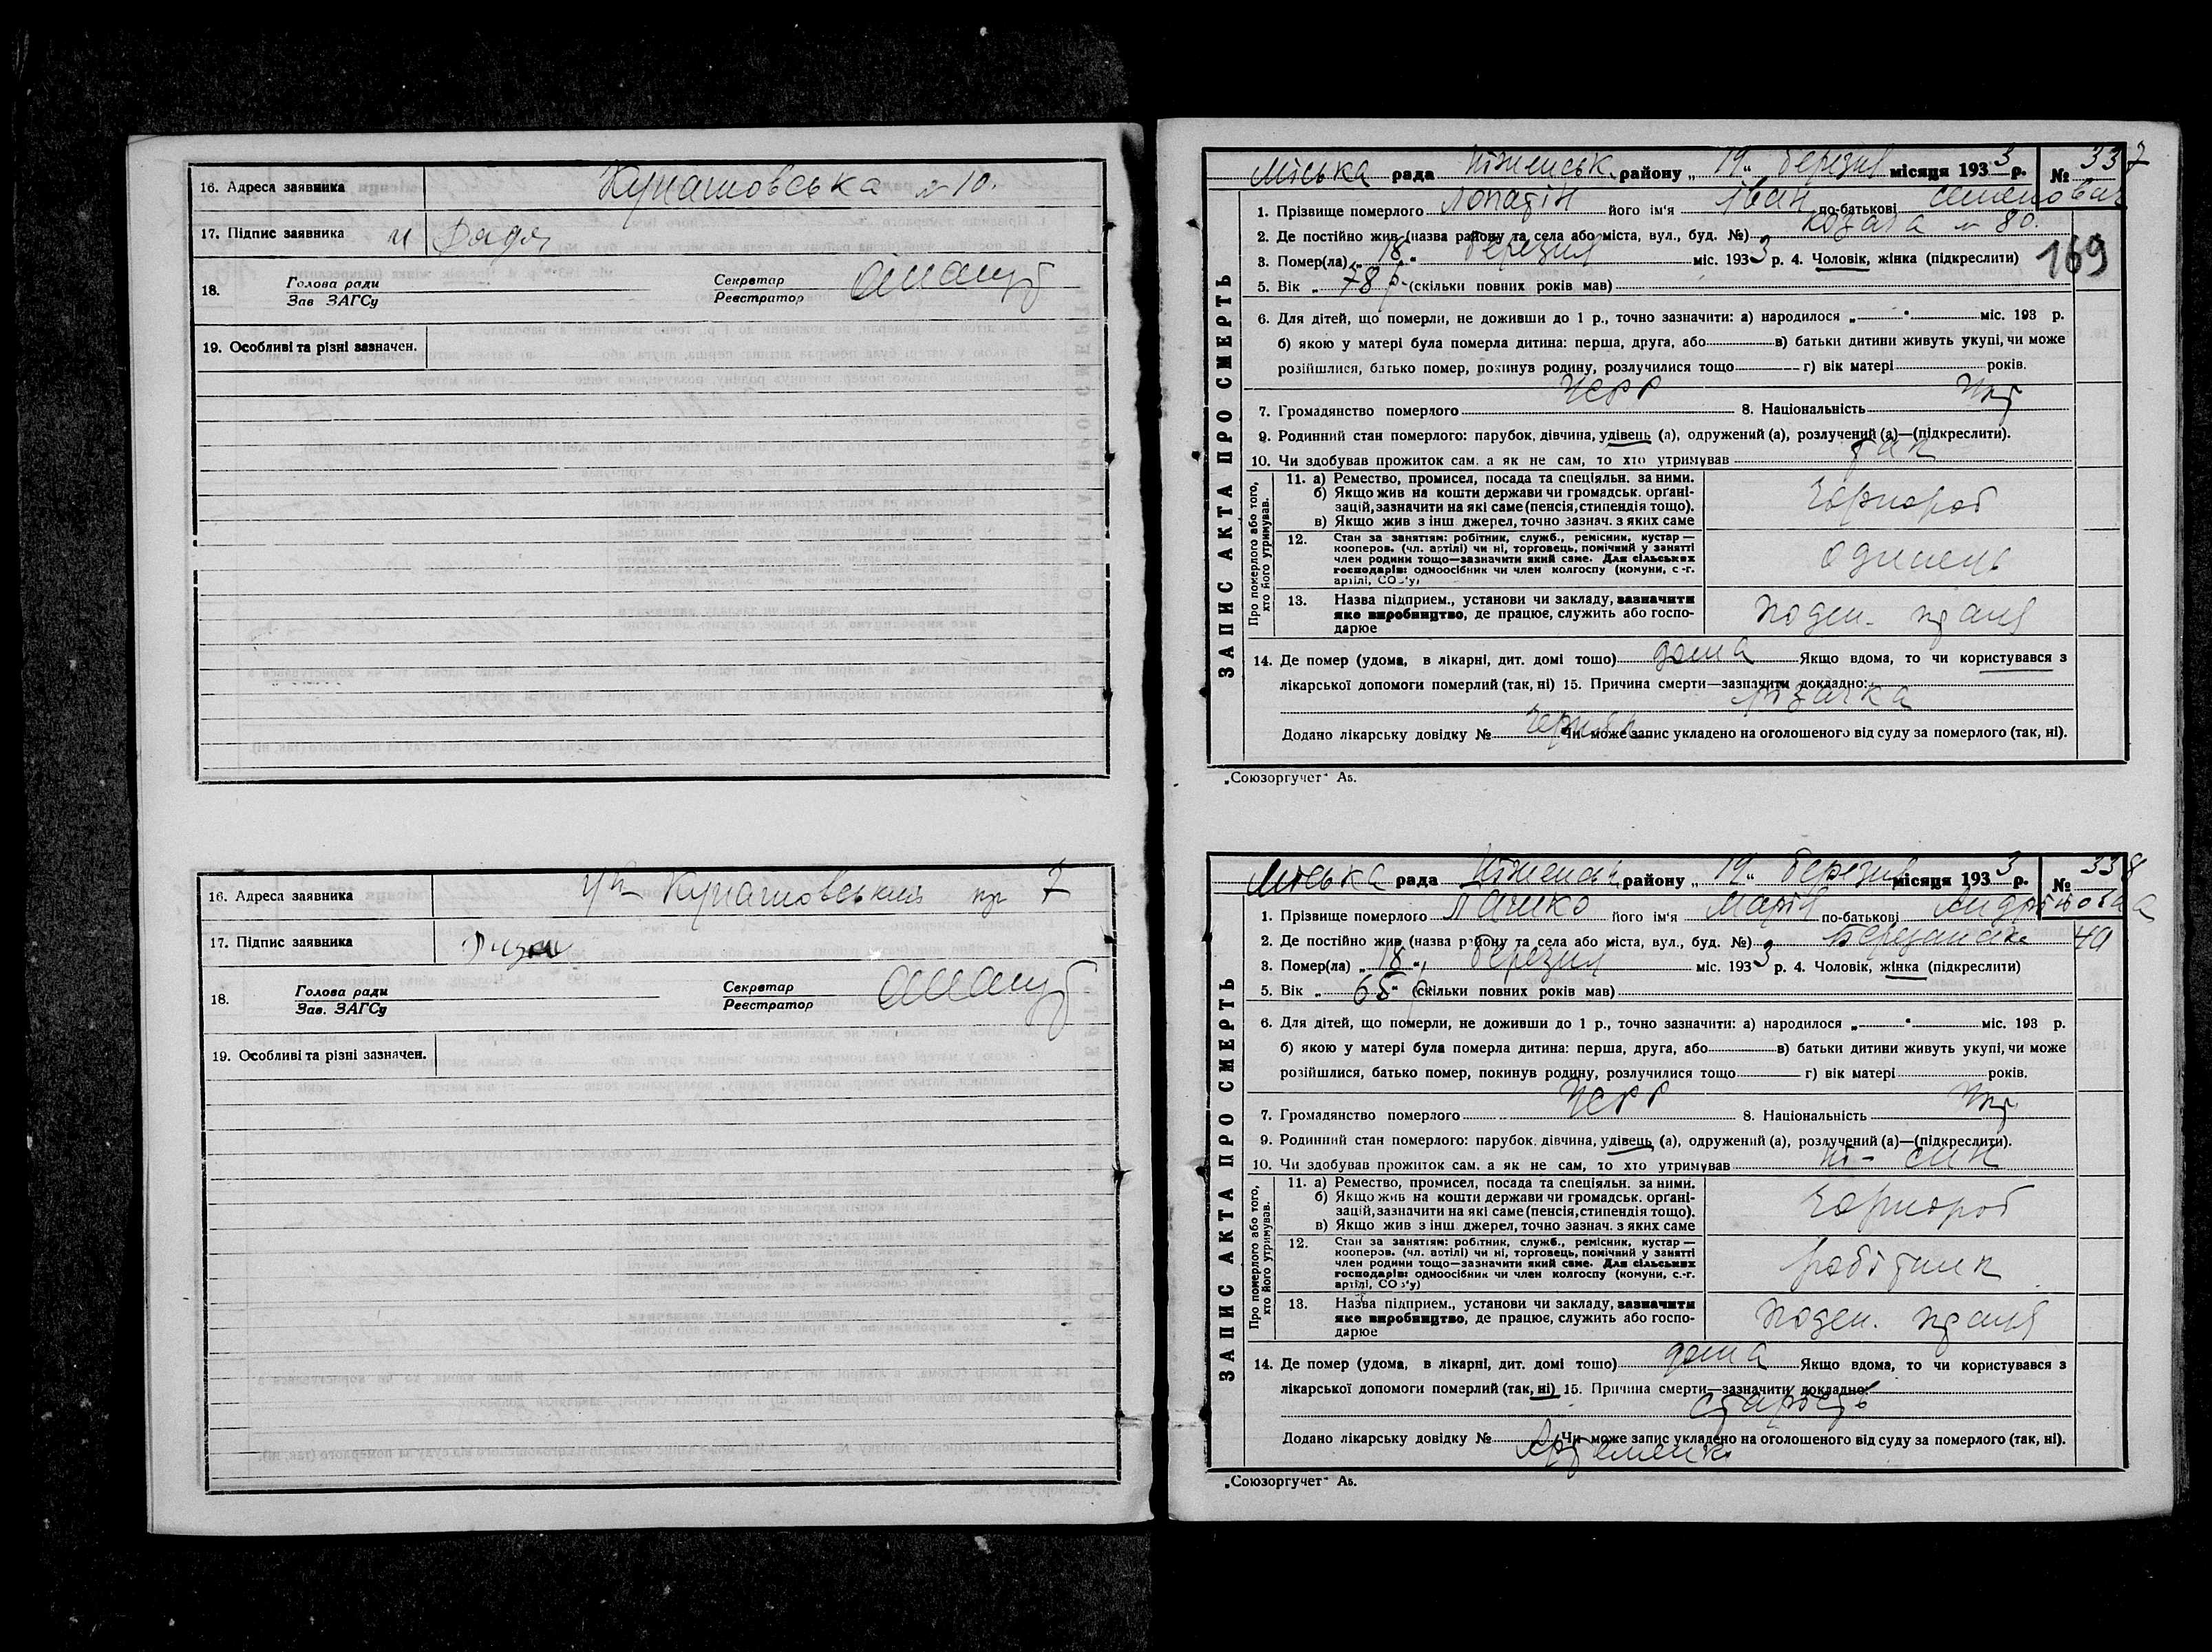 16. Адреса заявника Кунашовська № 10.
17. Підпис заявника
18. Голова ради Секретар
Зав ЗАГСу Реєстратор
19. Особливі та різні зазначен.
16. Адреса заявника Кунашовський 7
17. Підпис заявника
18. Голова ради Секретар
Зав. ЗАГСу Реєстратор
19. Особливі та різні зазначен.
ЗАПИС АКТА ПРО СМЕРТЬ
Міська рада Ніженськ. району „19“ березня місяця 1933 р. № 337
1. Прізвище померлого Лопатін його ім'я Іван по-батькові Семенович
2. Де постійно жив (назва району та села або міста, вул., буд. №) Козача № 80.
169
3. Помер(ла) „18“ березня міс. 1933 р. 4. Чоловік, жінка (підкреслити)
5. Вік „78 р. (скільки повних років мав)
6. Для дітей, що померли, не доживши до 1 р., точно зазначити: а) народилося „ “ міс. 193 р.
б) якою у матері була померла дитина: перша, друга, або в) батьки дитини живуть укупі, чи може
розійшлися, батько помер, покинув родину, розлучилися тощо г) вік матері років.
7. Громадянство померлого УСРР 8. Національність Укр
9. Родинний стан померлого: парубок, дівчина, удівець (а), одружений (а), розлучений (а)—(підкреслити).
10. Чи здобував прожиток сам, а як не сам, то хто утримував так
Про померлого або того, хто його утримував.
11. а) Ремество, промисел, посада та спеціяльн. за ними.
б) Якщо жив на кошти держави чи громадськ. органі-
зацій, зазначити на які саме (пенсія, стипендія тощо).
в) Якщо жив з інш джерел, точно зазнач. з яких саме
чорнороб
12. Стан за заняттям: робітник, служб., ремісник, кустар —
кооперов. (чл. артілі) чи ні, торговець, помічний у занятті
член родини тощо—зазначити який саме. Для сільських
господарів: одноосібник чи член колгоспу (комуни, с.-г.
артілі, СОЗ'у)
одинець
13. Назва підприєм., установи чи закладу, зазначити
яке виробництво, де працює, служить або госпо-
дарює
поден. праця
14. Де помер (удома, в лікарні, дит. домі тощо) дома Якщо вдома, то чи користувався з
лікарської допомоги померлий (так, ні) 15. Причина смерти—зазначити докладно:
різачка
Додано лікарську довідку № Чи може запис укладено на оголошеного від суду за померлого (так, ні).
„Союзоргучет“ Аз.
ЗАПИС АКТА ПРО СМЕРТЬ
Міська рада Ніженськ району „19“ березня місяця 1933 р. № 338
1. Прізвище померлого Лашко його ім'я Марія по-батькові Андріївна
2. Де постійно жив (назва району та села або міста, вул., буд. №)
3. Помер(ла) „18“ березня міс. 1933 р. 4. Чоловік, жінка (підкреслити)
5. Вік „65“ р. (скільки повних років мав)
6. Для дітей, що померли, не доживши до 1 р., точно зазначити: а) народилося „ “ міс. 193 р.
б) якою у матері була померла дитина: перша, друга, або в) батьки дитини живуть укупі, чи може
розійшлися, батько помер, покинув родину, розлучилися тощо г) вік матері років.
7. Громадянство померлого УСРР 8. Національність Укр
9. Родинний стан померлого: парубок, дівчина, удівець (а), одружений (а), розлучений (а)—(підкреслити).
10. Чи здобував прожиток сам, а як не сам, то хто утримував ні - син
Про померлого або того, хто його утримував.
11. а) Ремество, промисел, посада та спеціяльн. за ними.
б) Якщо жив на кошти держави чи громадськ. органі-
зацій, зазначити на які саме (пенсія, стипендія тощо).
в) Якщо жив з інш джерел, точно зазнач. з яких саме
чорнороб
12. Стан за заняттям: робітник, служб., ремісник, кустар —
кооперов. (чл. артілі) чи ні, торговець, помічний у занятті
член родини тощо—зазначити який саме. Для сільських
господарів: одноосібник чи член колгоспу (комуни, с.-г.
артілі, СОЗ'у)
робітник
13. Назва підприєм., установи чи закладу, зазначити
яке виробництво, де працює, служить або госпо-
дарює
поден. праця
14. Де помер (удома, в лікарні, дит. домі тощо) дома Якщо вдома, то чи користувався з
лікарської допомоги померлий (так, ні) 15. Причина смерти—зазначити докладно:
старість
Додано лікарську довідку № Артеменко Чи може запис укладено на оголошеного від суду за померлого (так, ні).
„Союзоргучет“ Аз.